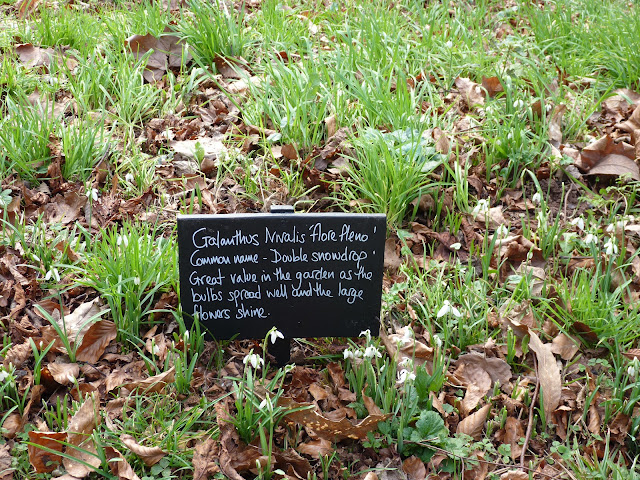 Galanthus Nivalis 'Flore Pleno'
Common name - Double snowdrop
Great value in the garden as the
bulbs spread well and the large
flowers shine.